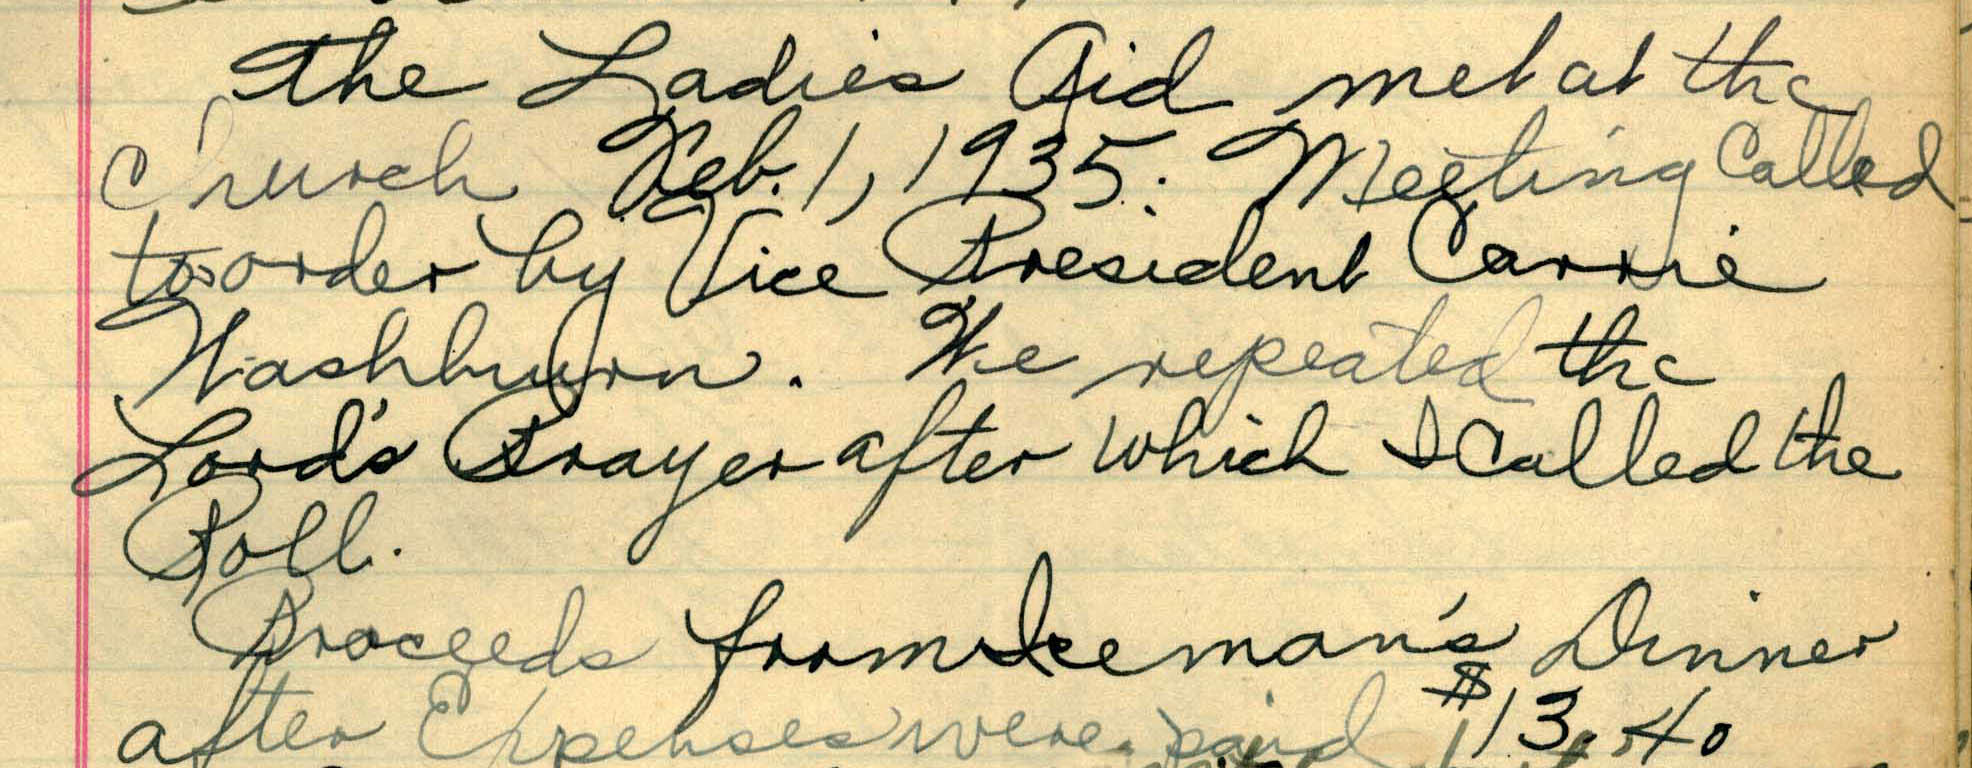 The Ladies Aid met at the
Church Feb. 1, 1935. Meeting Called
to order by Vice President Carrie
Washburn. We repeated the
Lord's Prayer after which I called the
Roll.
Proceeds from Iceman's Dinner
after Expenses were paid $13.40